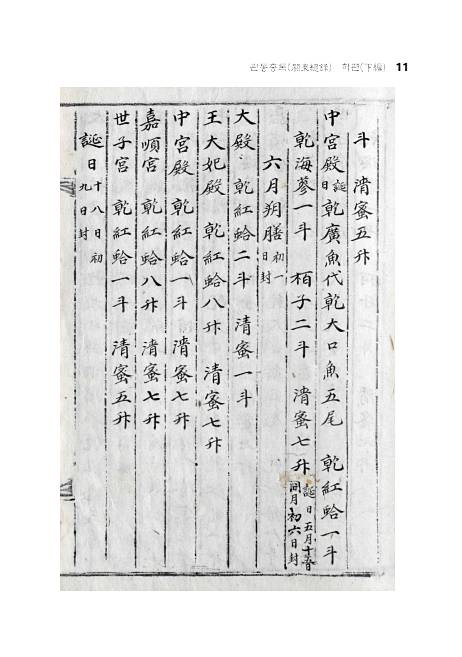 관동총록(關東總錄) 하편(下編) 11
斗 淸蜜五升
中宮殿 誕日 乾廣魚代乾大口魚五尾 乾紅蛤一斗
乾海蔘一斗 栢子二斗 淸蜜七升 誕日五月十 同月初六日封
六月朔膳 初一日封
大殿 乾紅蛤二斗 淸蜜一斗
王大妃殿 乾紅蛤八升 淸蜜七升
中宮殿 乾紅蛤一斗 淸蜜七升
嘉順宮 乾紅蛤八升 淸蜜七升
世子宮 乾紅蛤一斗 淸蜜五升
誕日 十八日初九日封